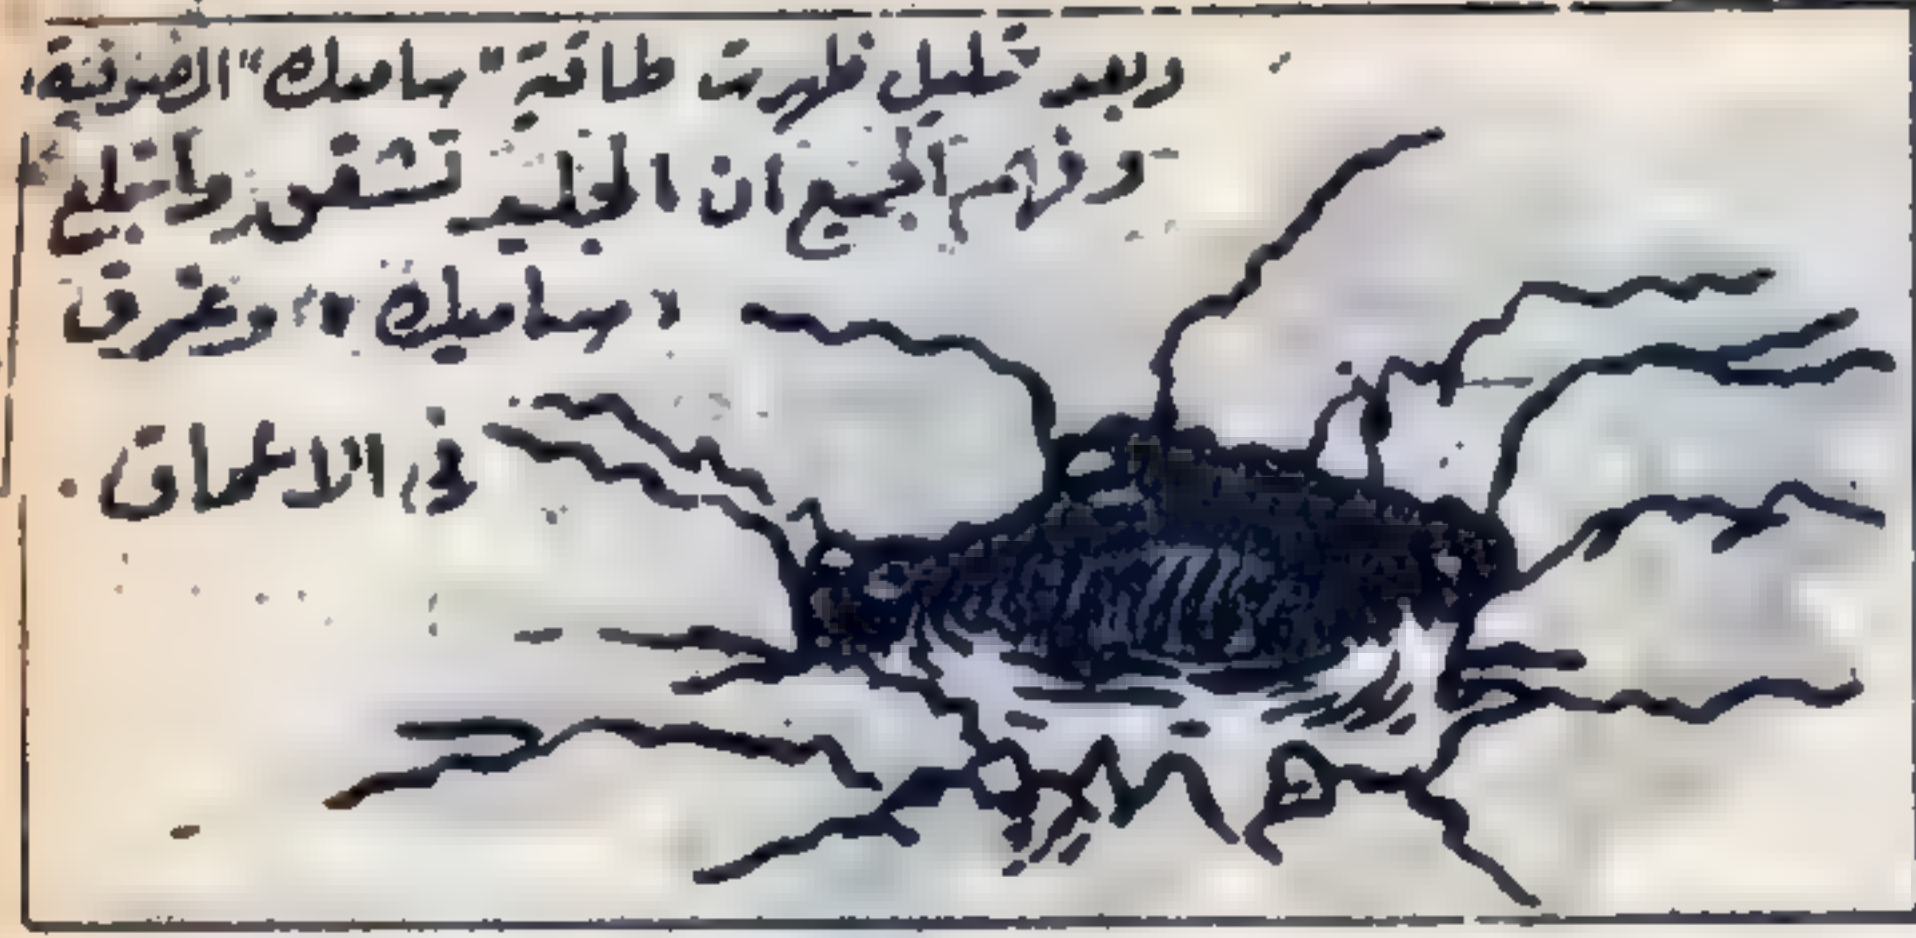 وبعد قليل ظهرت طاقية "ساميك" الصوفية،
وفهم الجميع ان الجليد تشقق وابتلع
"ساميك"، وغرق
فى الاعماق.